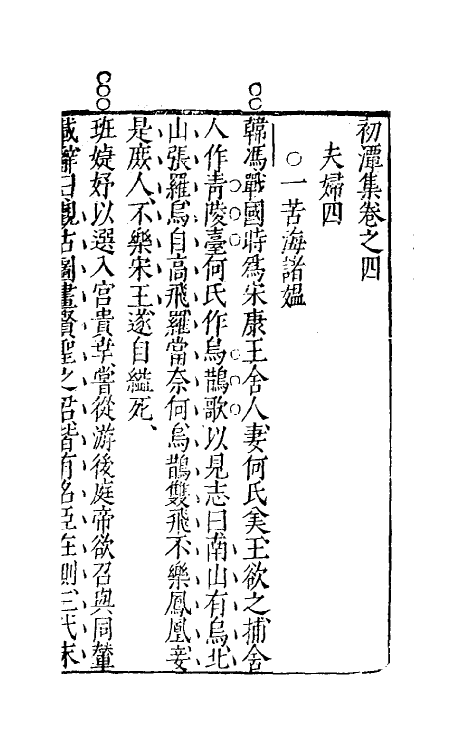 初潭集卷之四
夫婦四
○一苦海諸媪
韓馮戰國時爲宋康王舍人妻何氏美王欲之捕舍
人作靑陵臺何氏作烏鵲歌以見志曰南山有烏北
山張羅烏自高飛羅當奈何烏鵲雙飛不樂鳳凰妾
是庶人不樂宋王遂自縊死
班婕妤以選入宮貴幸嘗從游後庭帝欲召與同輦
載辭曰觀古圖畫賢聖之君皆有名臣在側三代末